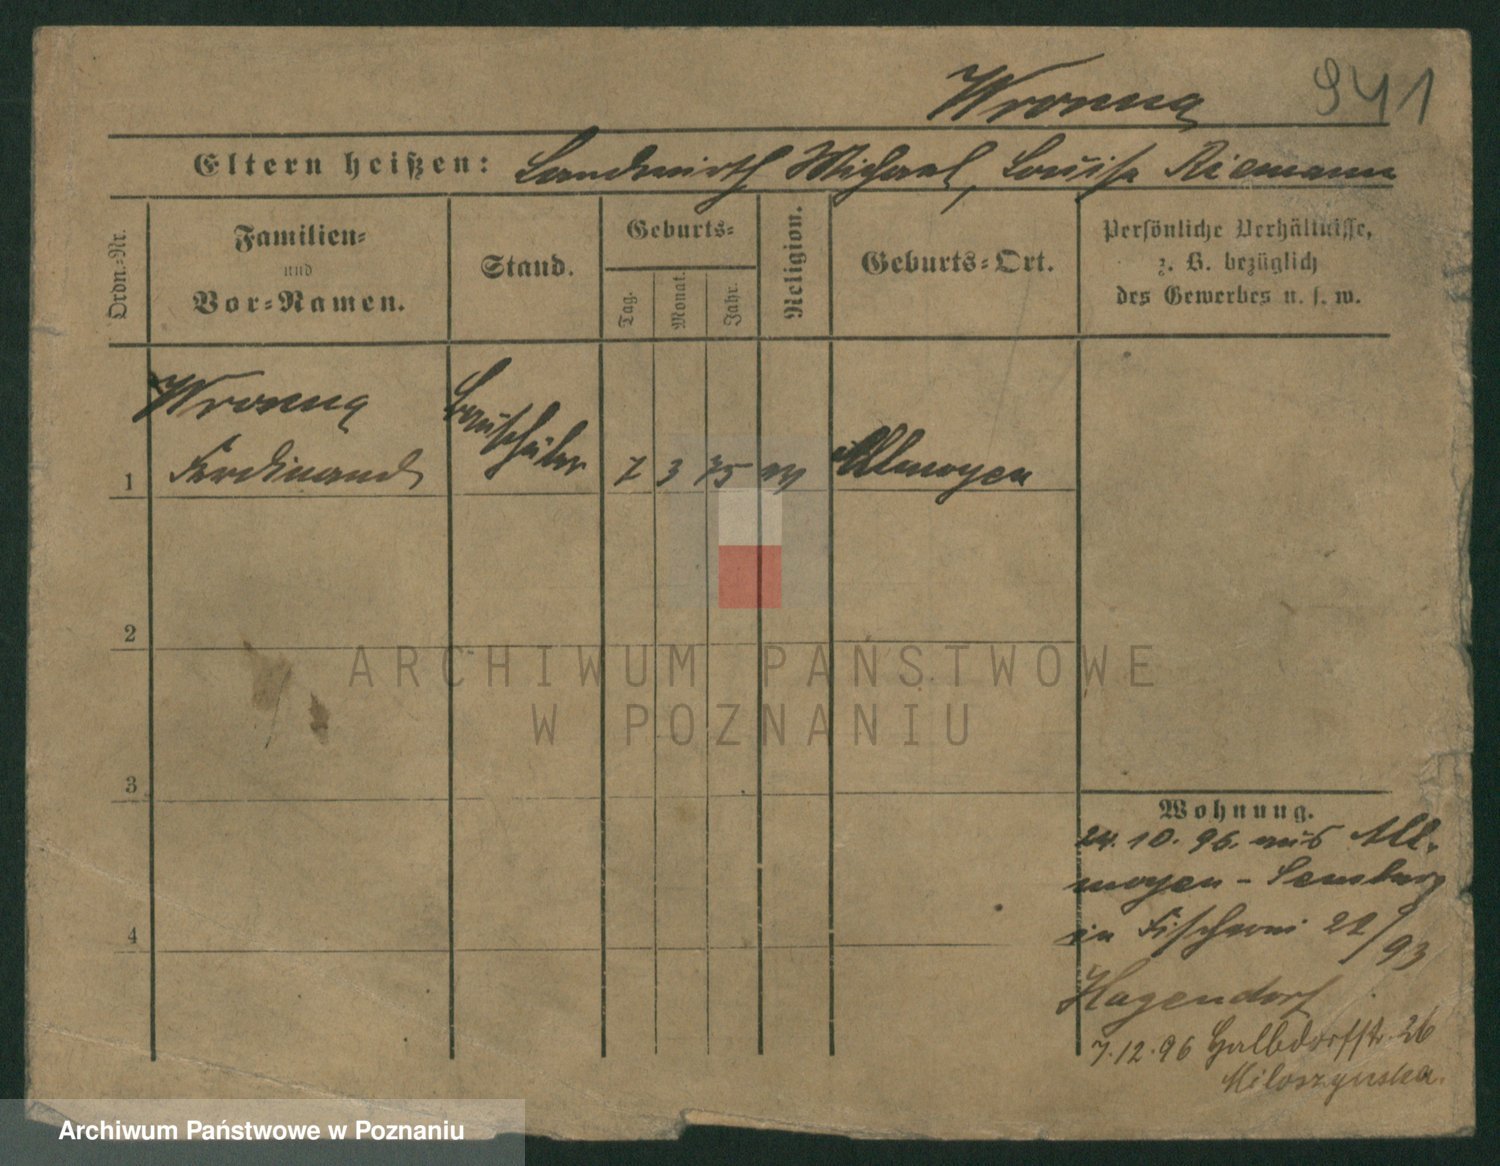 Wronna 941
Eltern heißen: Landwirth Michael, Louise Riemann
Ordn.-Nr.
Familien-
und
Vor-Namen.
Stand.
Geburts-
Tag.
Monat.
Jahr.
Religion.
Geburts-Ort.
Persönliche Verhältnisse,
z. B. bezüglich
des Gewerbes u. s. w.
Wronna
Bauschüler
1 Ferdinand 7 3 75 Allmoyen
2
3
4
ARCHIWUM PAŃSTWOWE
W POZNANIU
Wohnung.
24. 10. 96. aus All-
moyen - Sensburg
in Fischerei 22/93
Hagendorf
7.12.96 Halbdorfstr. 26
Miloszynska.
Archiwum Państwowe w Poznaniu